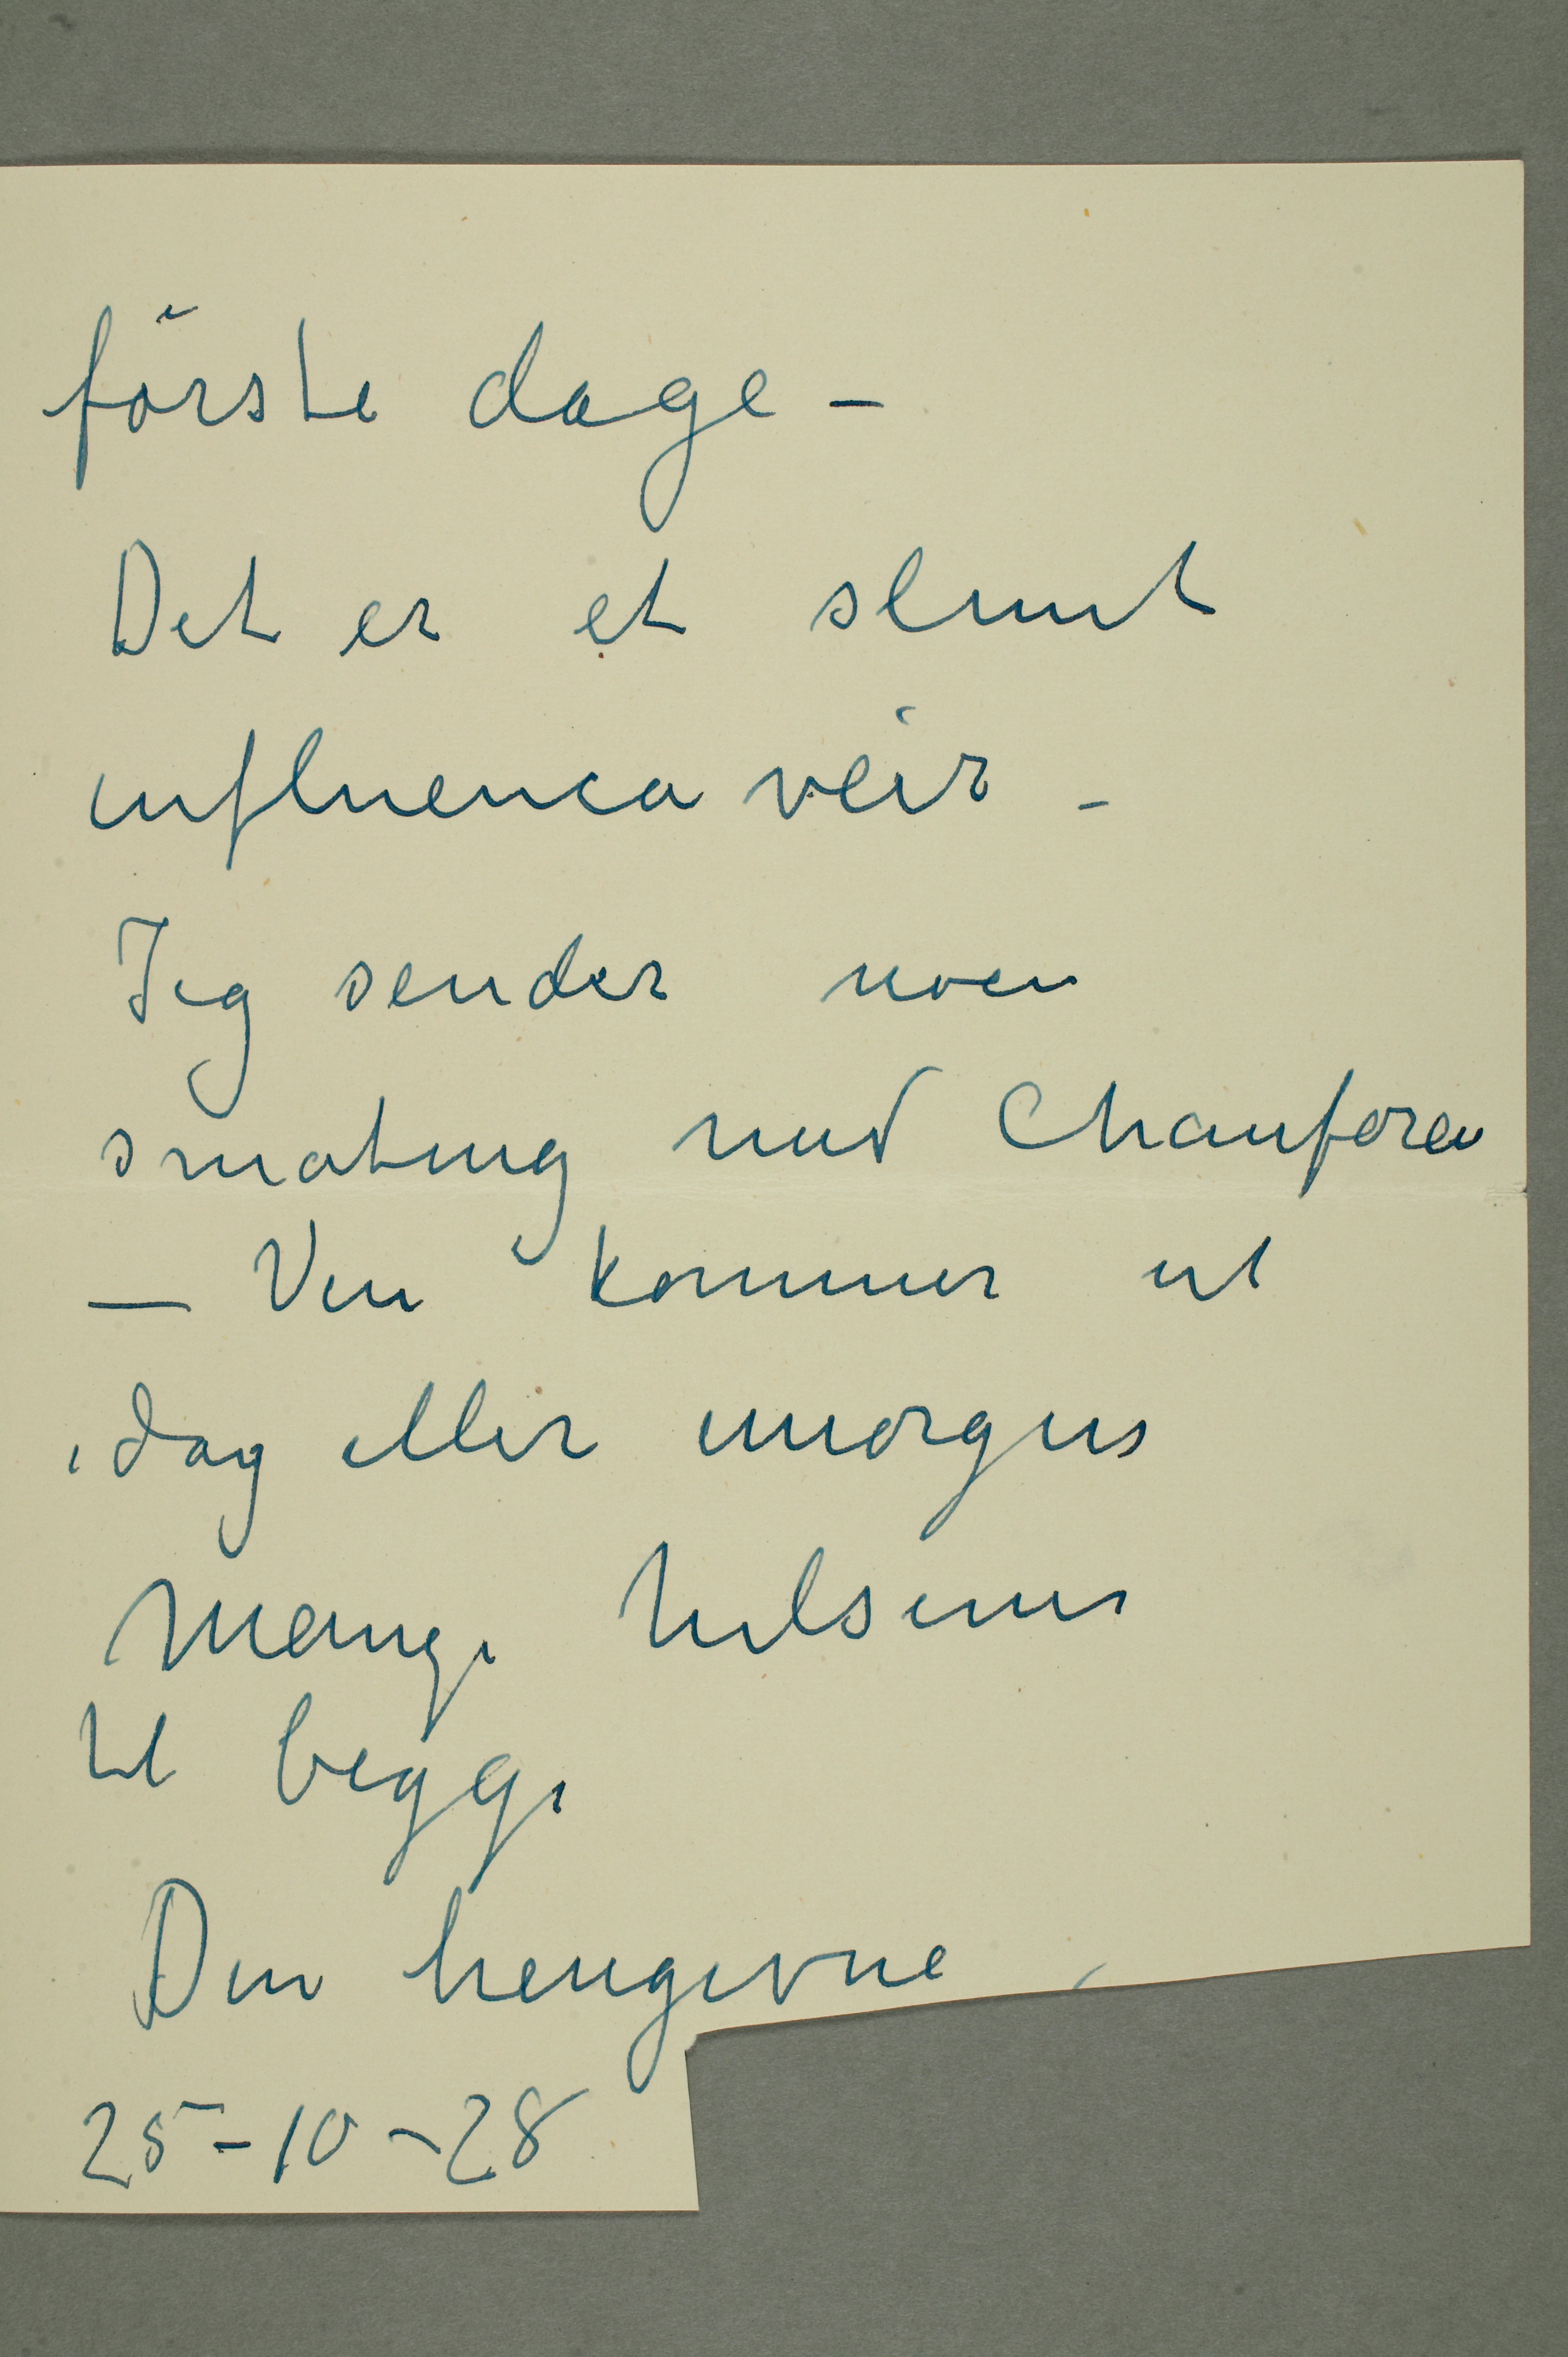 förste dage –
Det er et slemt
influenca veir –
Jeg sender noen
småting med Chauforen
– Vin kommer ut
idag eller imorgen
Mange hilsener
til begge
Din hengivne
25–10–28